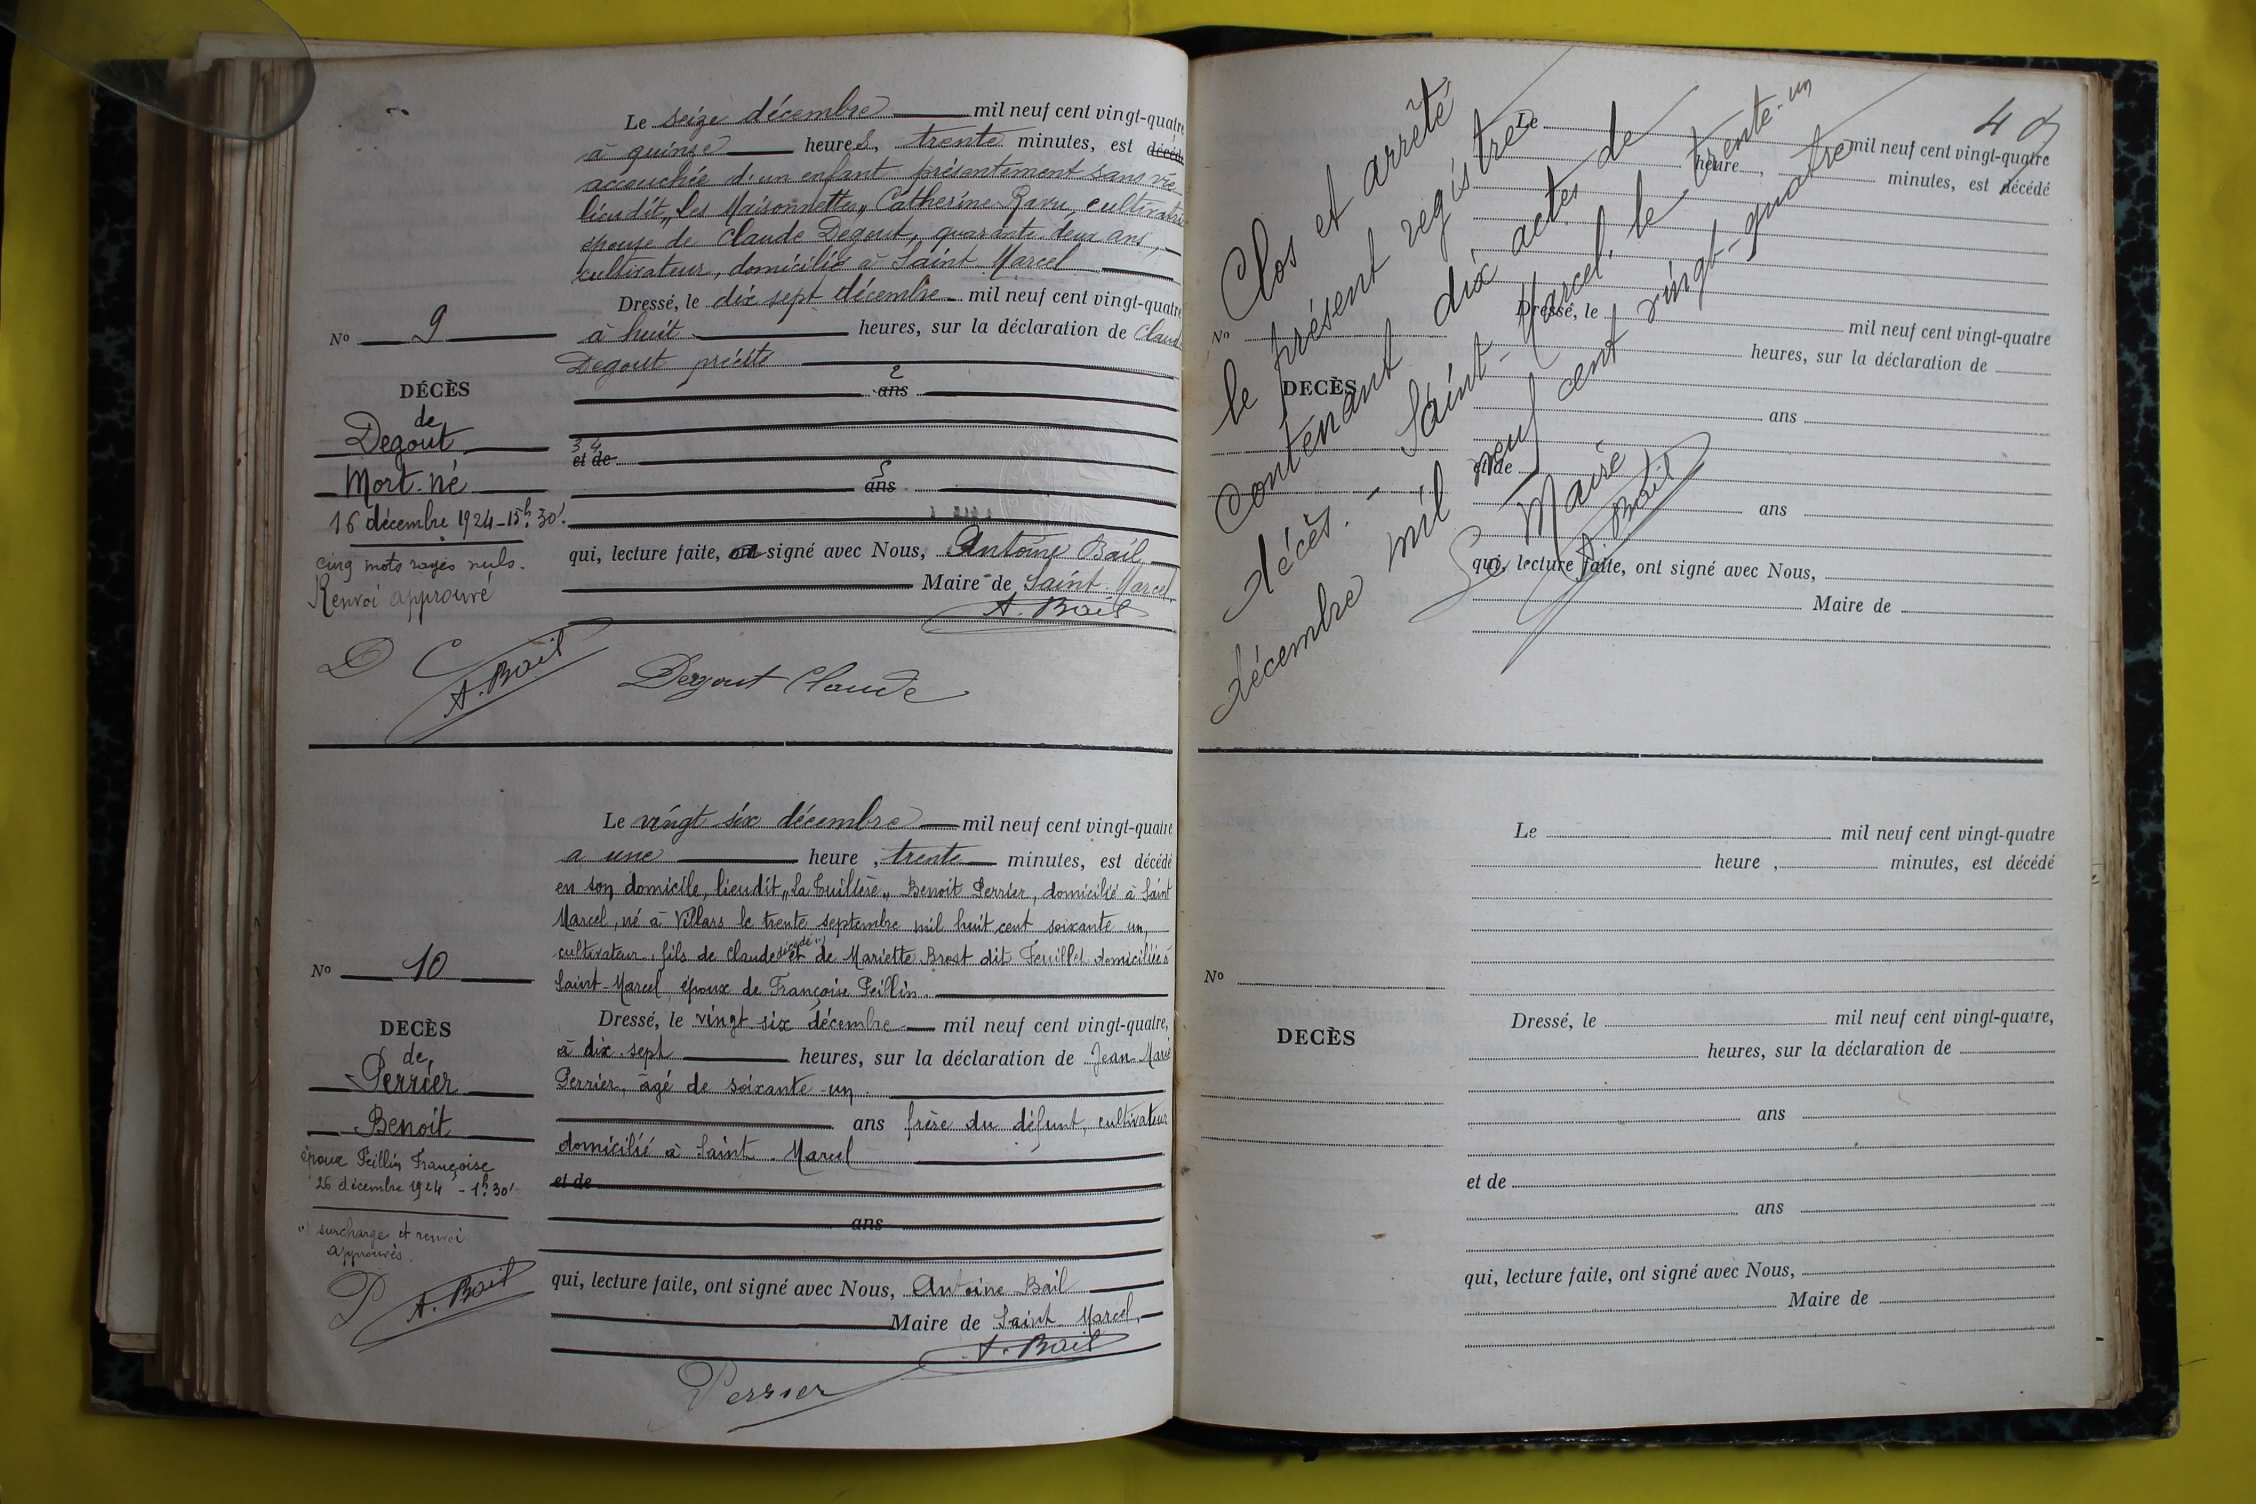 Le seize décembre mil neuf cent vingt-quatre
à quinze heures, trente minutes, est décédé
accouchée d'un enfant présentement sans vie
lieudit „les Maisonnettes„ Catherine Ravu, cultivatrice
épouse de Claude Degout, quarante deux ans,
cultivateur, domicilié à Saint-Marcel
Dressé, le dix sept décembre mil neuf cent vingt-quatre
à huit heures, sur la déclaration de Claude
Degout précité
2
ans
3 4
et de
5
ans
qui, lecture faite, ont signé avec Nous, Antoine Bail
Maire de Saint-Marcel
A. Bail
No 9
DÉCÈS
de
Degout
Mort-né
16 décembre 1924-15h 30'.
cinq mots rayés nuls.
Renvoi approuvé
D C
A. Bail
Degout Claude
Le vingt six décembre mil neuf cent vingt-quatre
à une heure, trente minutes, est décédé
en son domicile, lieudit „La Tuillère„ Benoit Perrier, domicilié à Saint
Marcel, né à Villars le trente septembre mil huit cent soixante un,
cultivateur, fils de Claude décédé (1) et de Mariette Brost dit Feuillet domiciliée à
Saint-Marcel, époux de Françoise Peillin.
Dressé, le vingt six décembre mil neuf cent vingt-quatre,
à dix-sept heures, sur la déclaration de Jean-Marie
Perrier, âgé de soixante-un
ans frère du défunt, cultivateur
domicilié à Saint-Marcel
et de
ans
qui, lecture faite, ont signé avec Nous, Antoine Bail
Maire de Saint-Marcel,
A. Bail
Perrier
No 10
DECÈS
de
Perrier
Benoit
époux Peillin Françoise
26 décembre 1924 - 1h 30'
(1) surcharge et renvoi
approuvés.
P
A. Bail
4
Clos et arrêté
le présent registre
contenant dix actes de
décès. - Saint-Marcel, le trente-un
décembre mil neuf cent vingt-quatre
Le Maire
A. Bail
Le mil neuf cent vingt-quatre
heure, minutes, est décédé
Dressé, le mil neuf cent vingt-quatre
heures, sur la déclaration de
No
DECÈS
ans
et de
ans
qui, lecture faite, ont signé avec Nous,
Maire de
Le mil neuf cent vingt-quatre
heure, minutes, est décédé
No
DECÈS
Dressé, le mil neuf cent vingt-quatre,
heures, sur la déclaration de
ans
et de
ans
qui, lecture faite, ont signé avec Nous,
Maire de